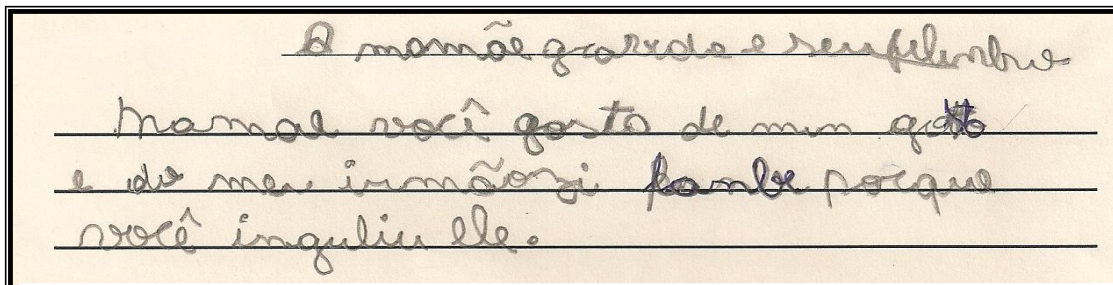 A mamãe gravida e seu filinho
Mamae você gosta de min gosto
e do meu irmãozi tanbe porque
você inguliu ele.